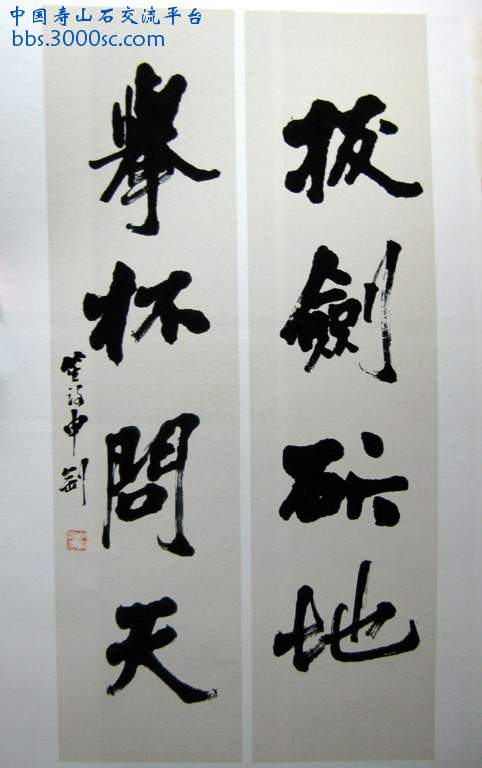 中国寿山石交流平台
bbs.3000sc.com
拔劍斫地
擧杯問天
申